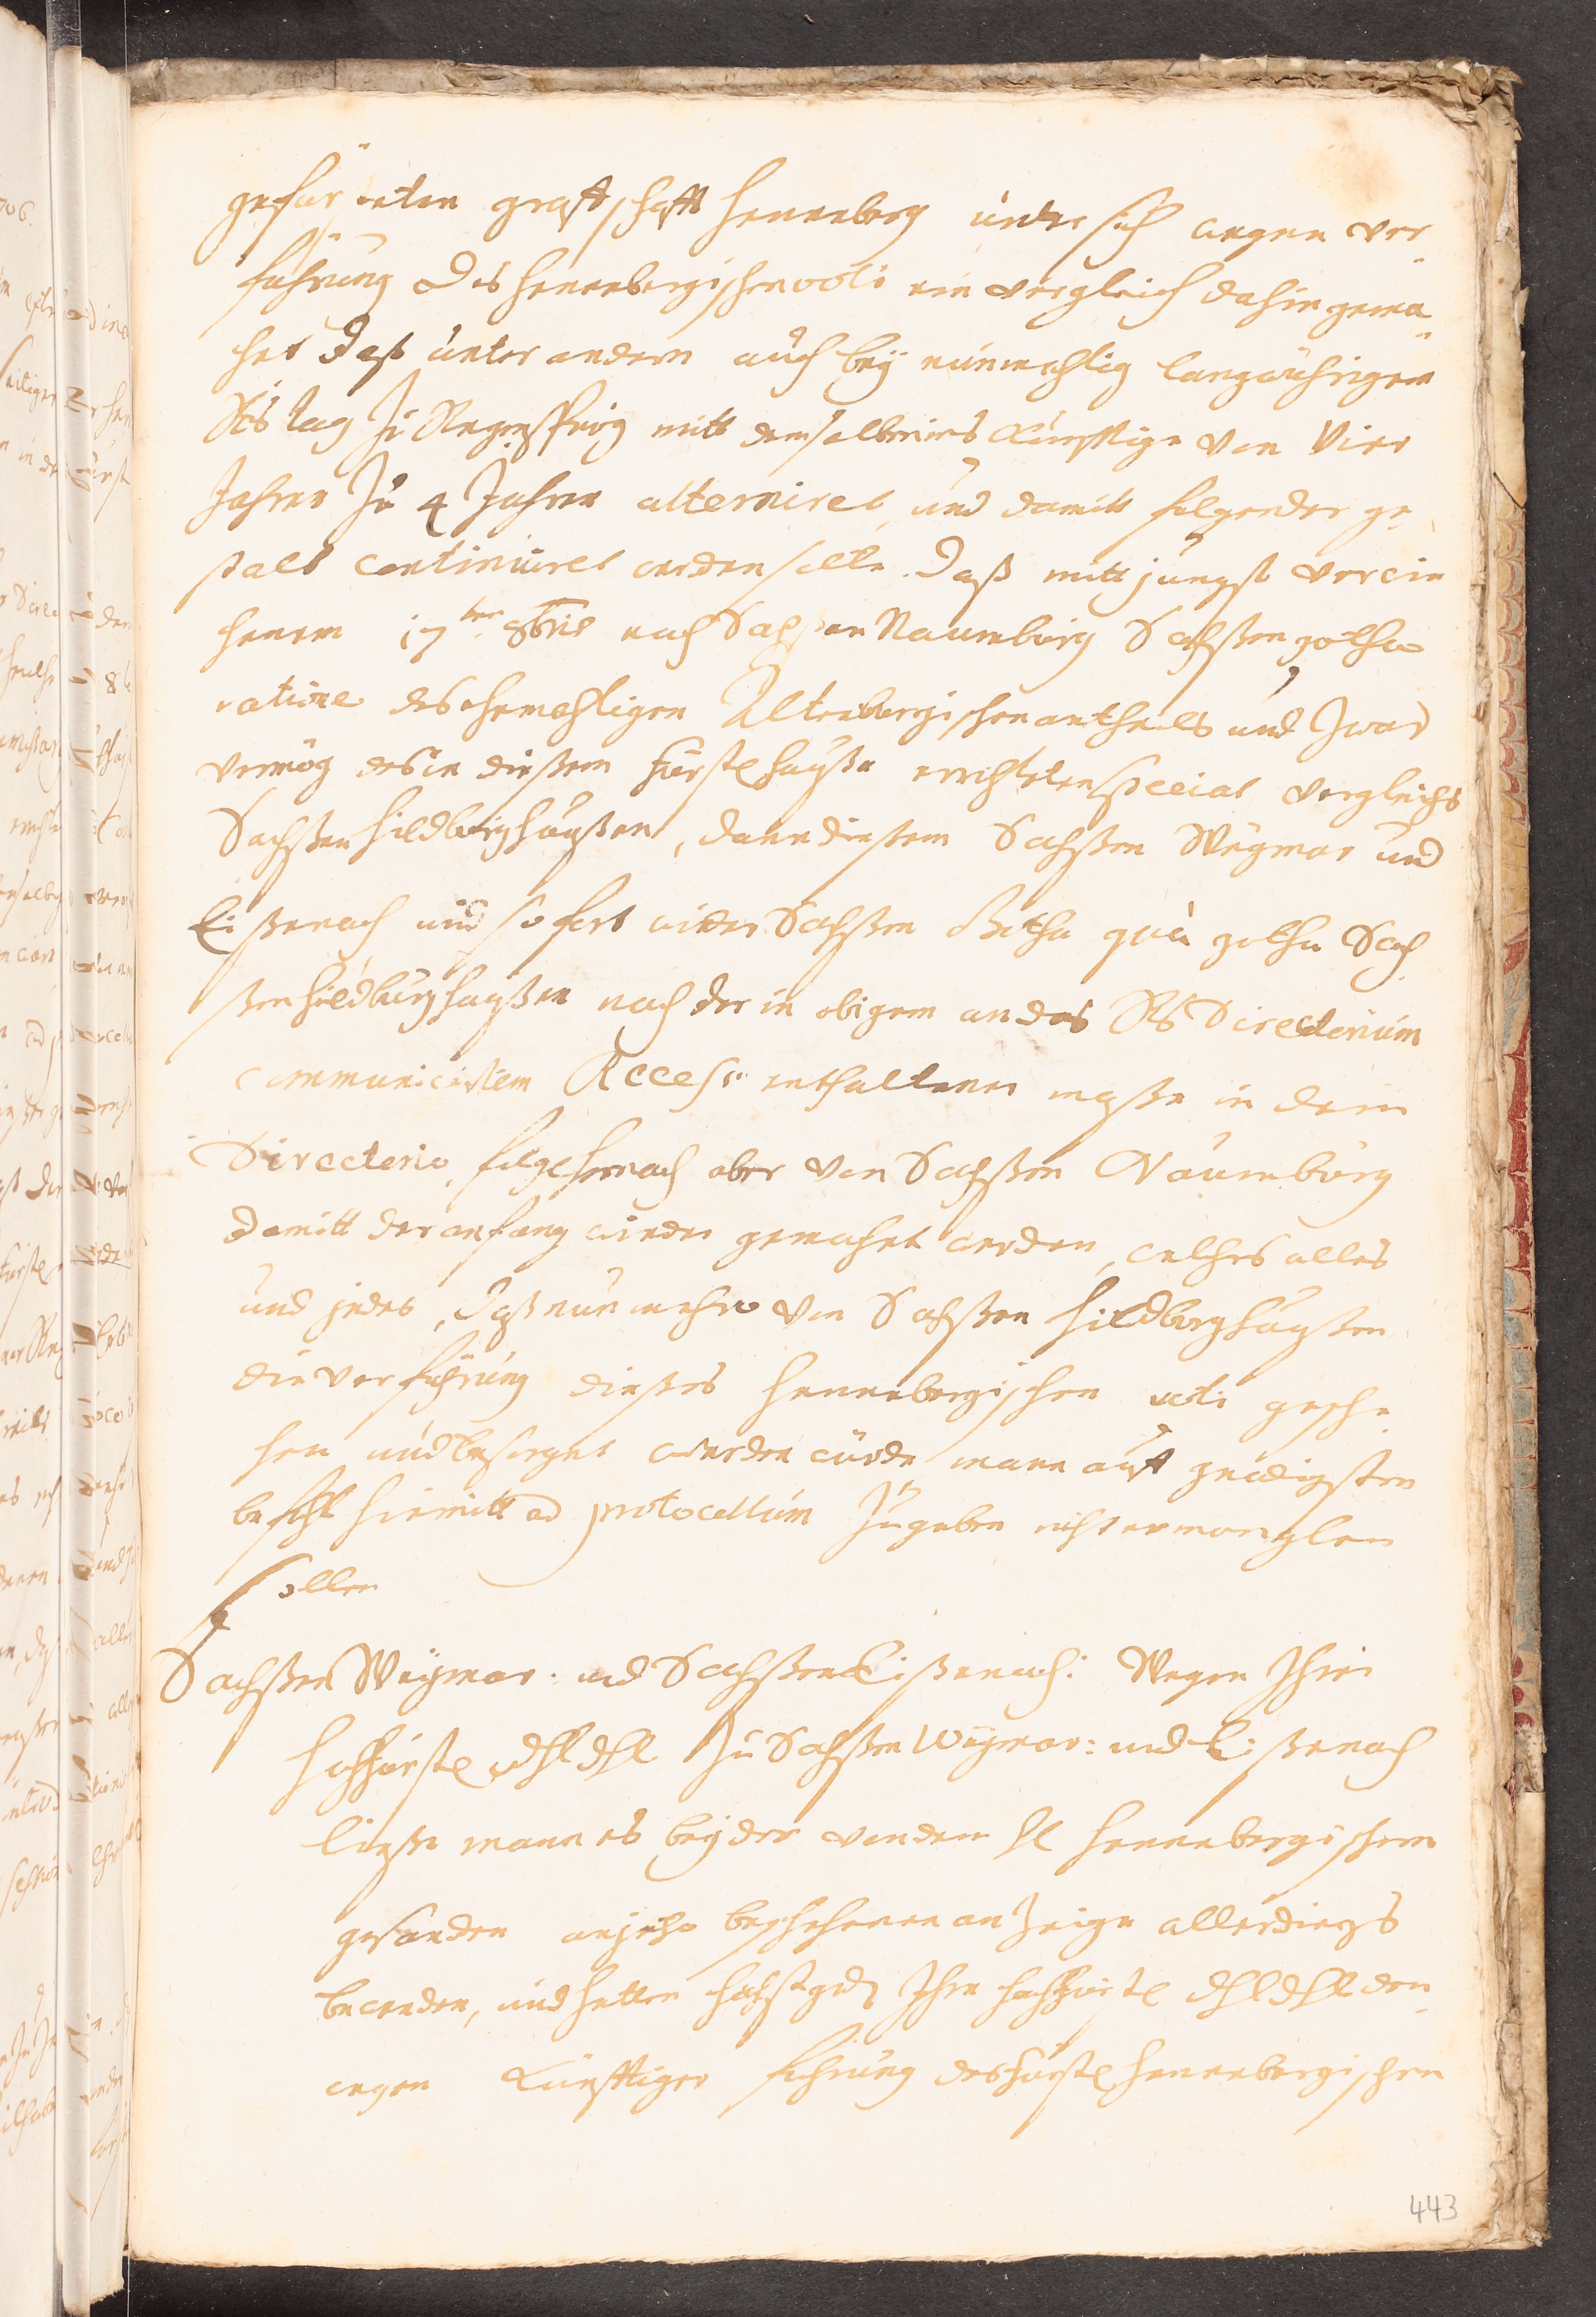 gefürsteten graffschafft Henneberg unter sich wegen ver-
führung des Hennebergischen voti ein vergleich dahin gema-
chet daß unter andern auch beÿ nunmehlig langwührigem
Rs tag zu Regenspurg mitt demselben ins künfftige von Vier
Jahren zu 4 Jahren alterniret, und damitt folgender ge-
stalt continuiret werden solle. Daß mitt jüngst verwie
henem 17ten 8bris nach Sachssen Naumburg Sachßen gotha
ratione des ehemahligen Altenburgischen antheils und zwar
vermög des in dießem fürstl hauße errichteten special vergleichs
Sachßen hildburghaußen, dann dießem Sachßen Weÿmar und
Eißenach und so fort wider Sachßen Gotha qua gotha Sach
ßen hildburghaußen nach der in obigem an das Rs Directorium
communicirtem Recess enthaltener maße in dem
Directorio, folgs hernach aber von Sachßen Naumburg
damitt der anfang wieder gemachet werden, welches alles
und jedes, daß nunmehro von Sachßen Hildburghaußen
die verführung dießes Hennebergischen voti gesche-
hen und besorget werden würde, mann auff gnädigsten
befehl hiemitt ad protocollum zugeben nicht ermanglen
sollen
Sachßen Weÿmar: und Sachßen Eißenach: Wegen Ihrer
hochfürstl dhl dhl zu Sachßen Weÿmar: und Eißenach
ließe mann es beÿ der von dem hl Hennebergischen
gesanden anjetzo beschehenen anzeige allerdings
bewenden, und hetten höchstged Ihre hochfürstl dhl dhl den-
wegen künfftiger führung des fürstl Hennebergischen
443